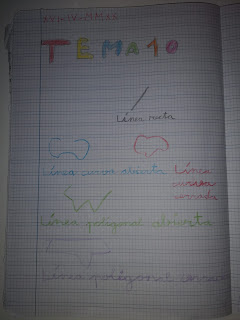 TEMA 10
Línea recta
Línea curva abierta
Línea
curva
cerrada
Línea poligonal abierta
Línea poligonal cerrada